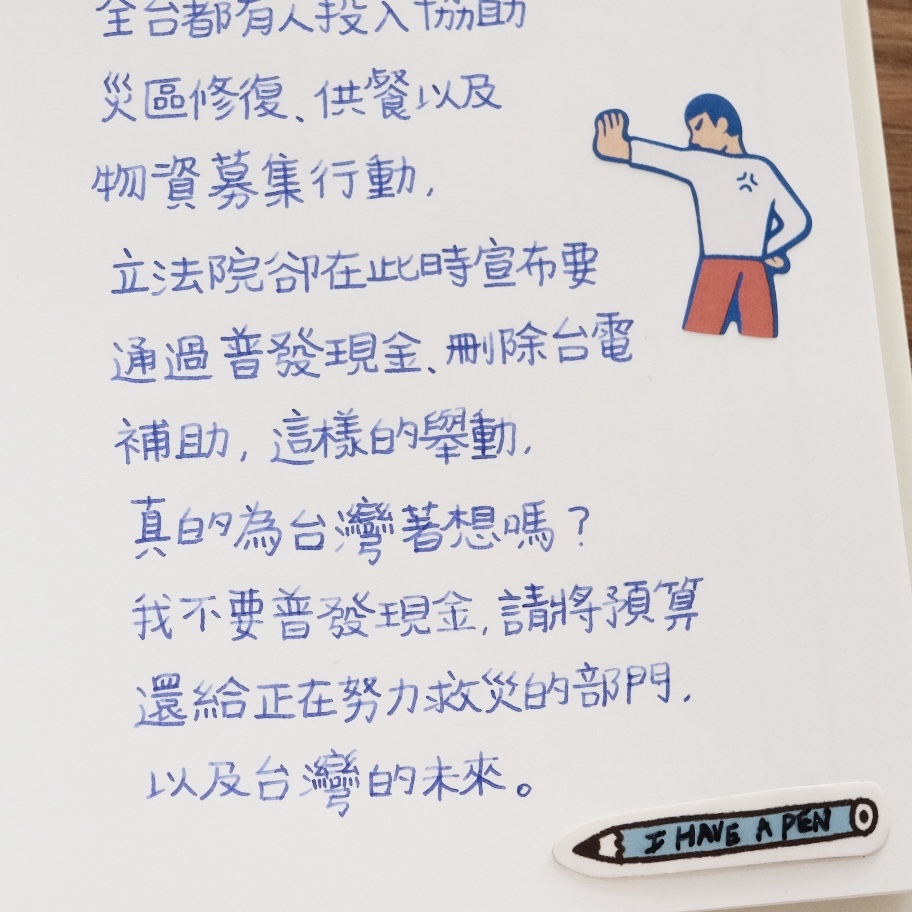 全台都有人投入協助
災區修復、供餐以及
物資募集行動,
立法院卻在此時宣布要
通過普發現金、刪除台電
補助,這樣的舉動,
真的為台灣著想嗎?
我不要普發現金,請將預算
還給正在努力救災的部門,
以及台灣的未來。
I HAVE A PEN